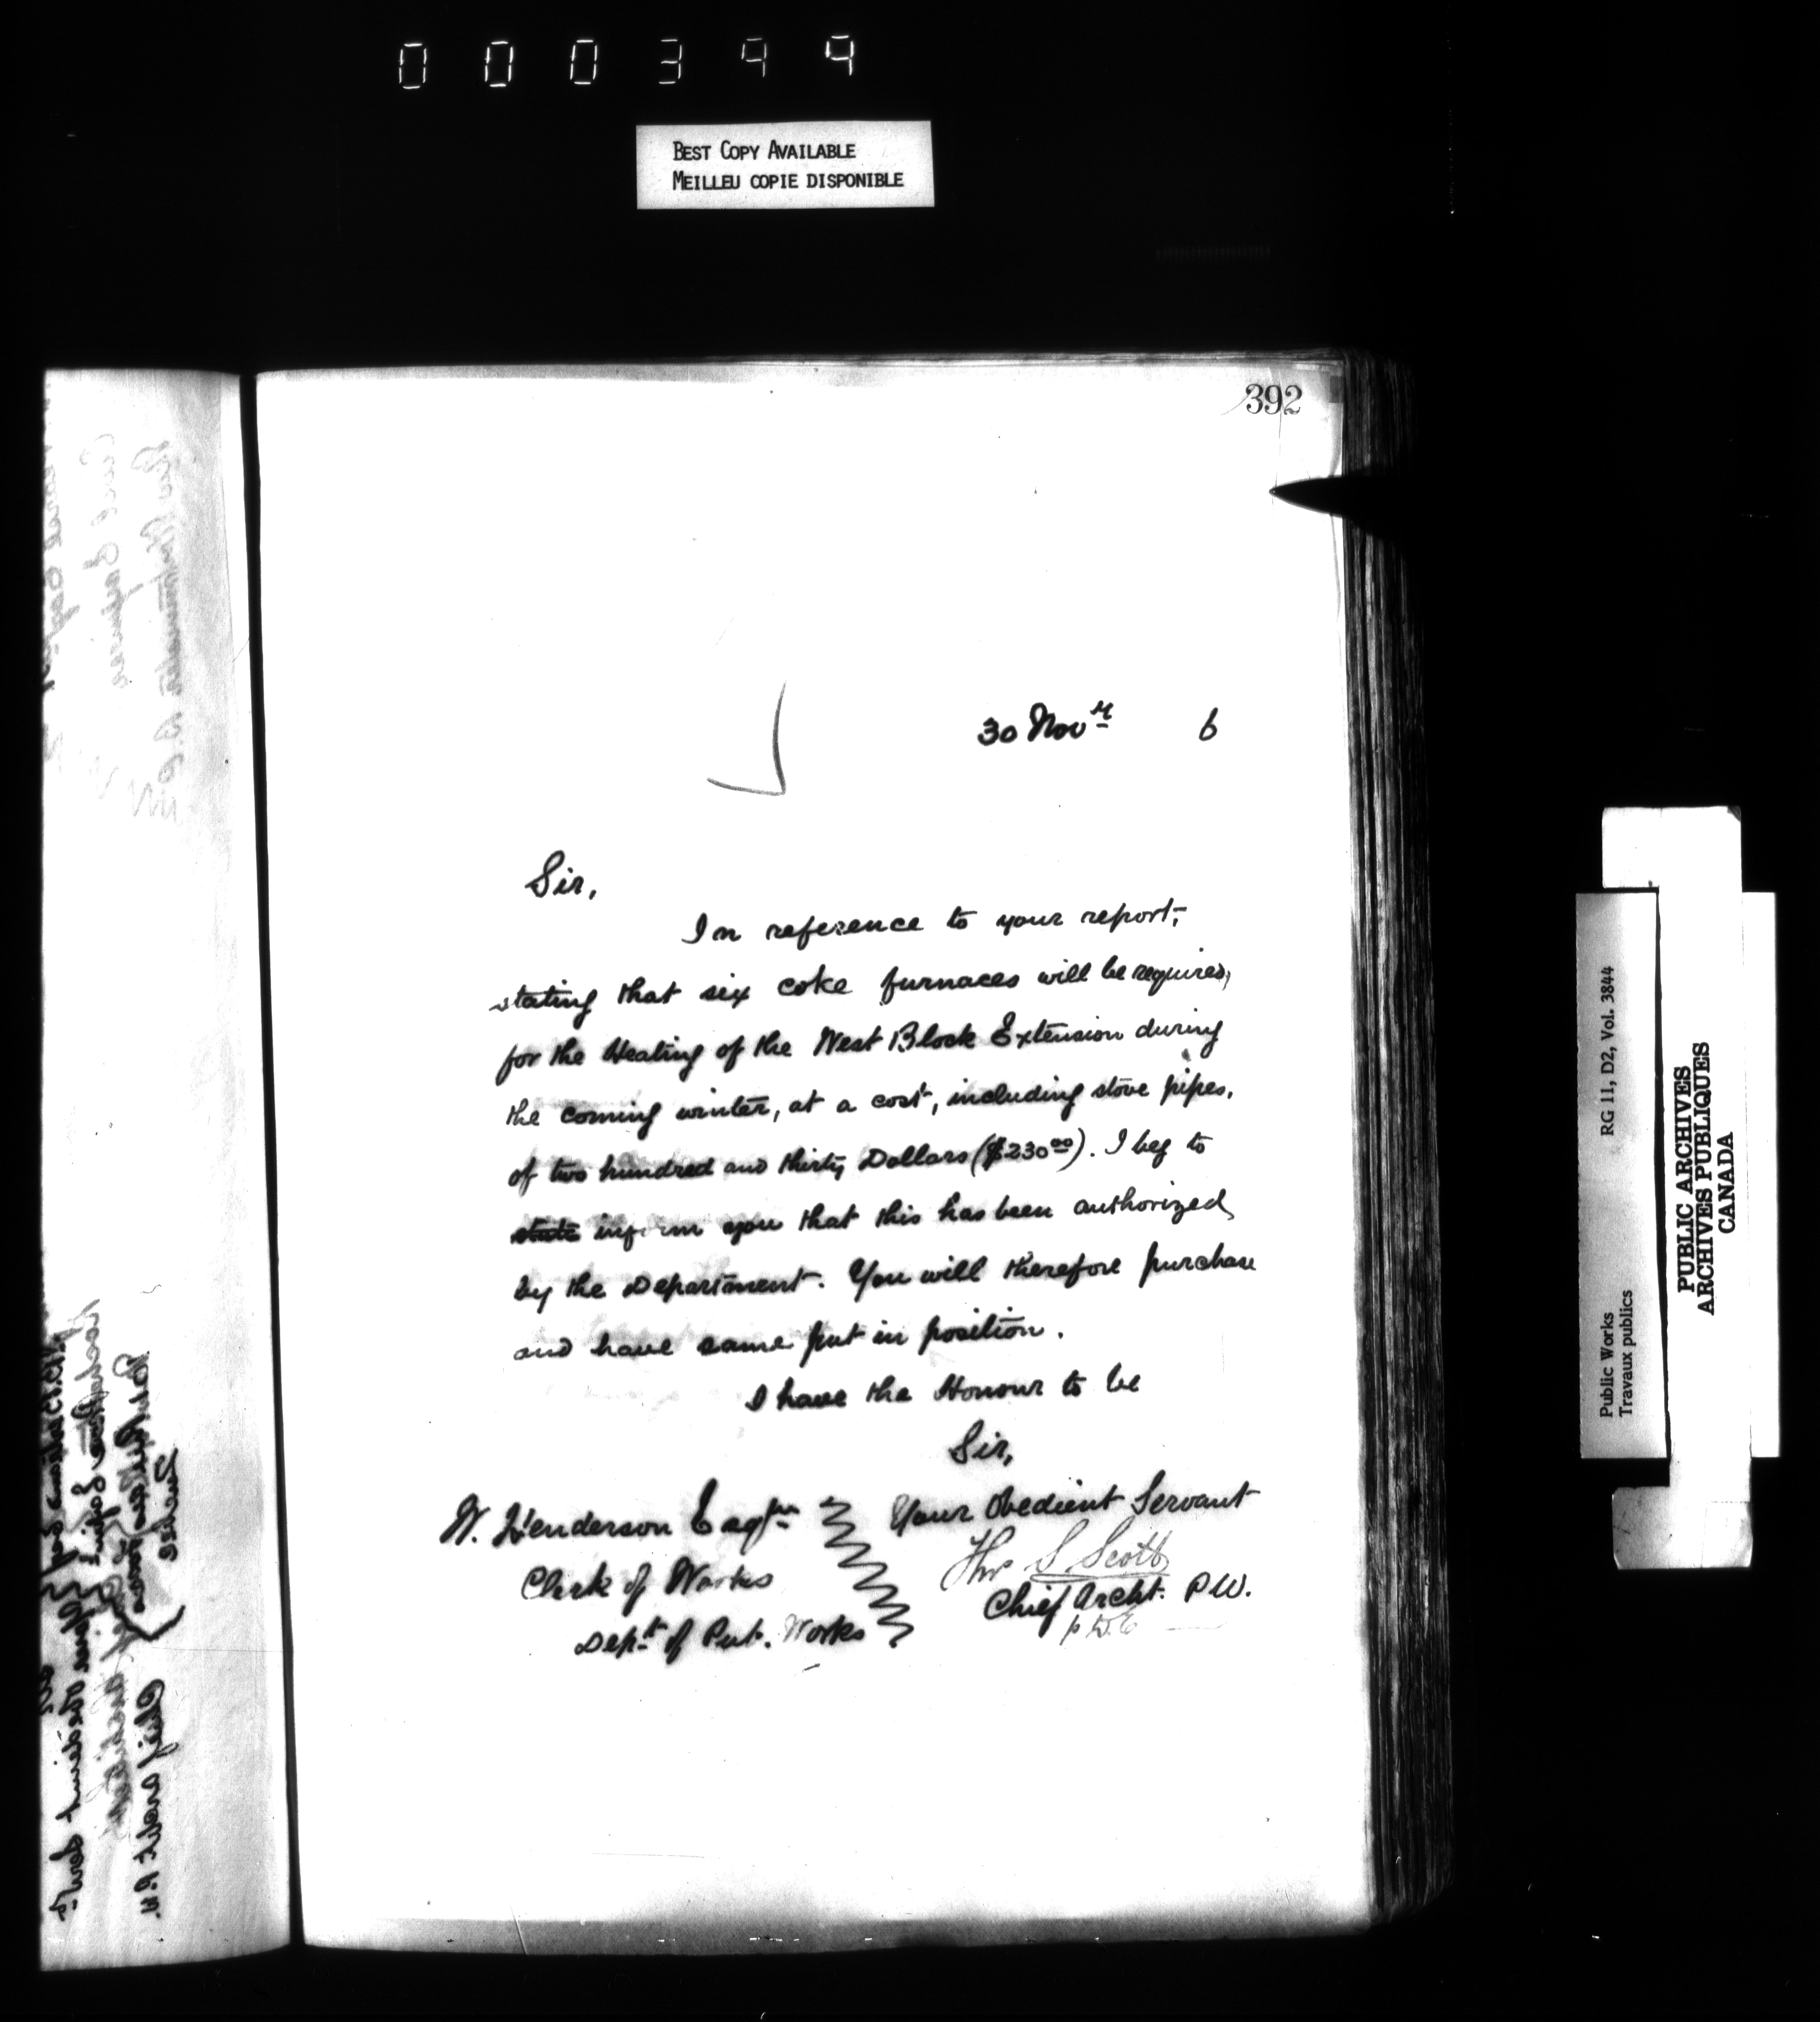 000344
BEST COPY AVAILABLE
MEILLEU COPIE DISPONIBLE
392
30 Novr 6
Sir,
In reference to your report,
stating that six coke furnaces will be required,
for the Heating of the West Block Extension during
the coming winter, at a cost, including stove pipes,
of two hundred and thirty Dollars ($230.00). I beg to
state inform you that this has been authorized
by the Department. You will therefore purchase
and have same put in position.
I have the Honour to be
Sir,
Your Obedient Servant
Thos S Scott
Chief Archt. P.W.
p D.E
W. Henderson Esqre
Clerk of Works
Dept of Pub. Works
Public Works
Travaux publics
RG 11, D2, Vol. 3844
PUBLIC ARCHIVES
ARCHIVES PUBLIQUES
CANADA